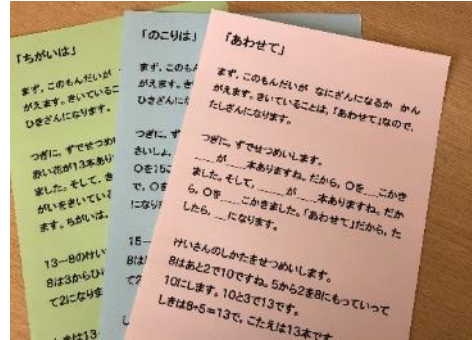 「ちがいは」
まず、このもんだいが
がえます。きいているこ
ひきざんになります。
つぎに、ずでせつめい
赤い花が13本あり
ました。そして、き
がいをきいている
ます。ちがいは、
13－8のけい
8は3からひ
て2になりま
しきは13
「のこりは」
まず、このも
がえます。
ひきざんに
つぎに、ず
さいしょ、
○を15こ
で、○を
になりま
15－
8は
て2
「あわせて」
まず、このもんだいが　なにざんになるか　かん
がえます。きいていることは、「あわせて」なので、
たしざんになります。
つぎに、ずでせつめいします。
＿＿が＿＿本ありますね。だから、○を＿＿こかき
ました。そして、＿＿が＿＿本ありますね。だか
ら、○を＿＿こかきました。「あわせて」だから、た
したら、＿＿になります。
けいさんのしかたをせつめいします。
8はあと2で10ですね。5から2を8にもっていって
10にします。10と3で13です。
しきは8+5=13で、こたえは13本です